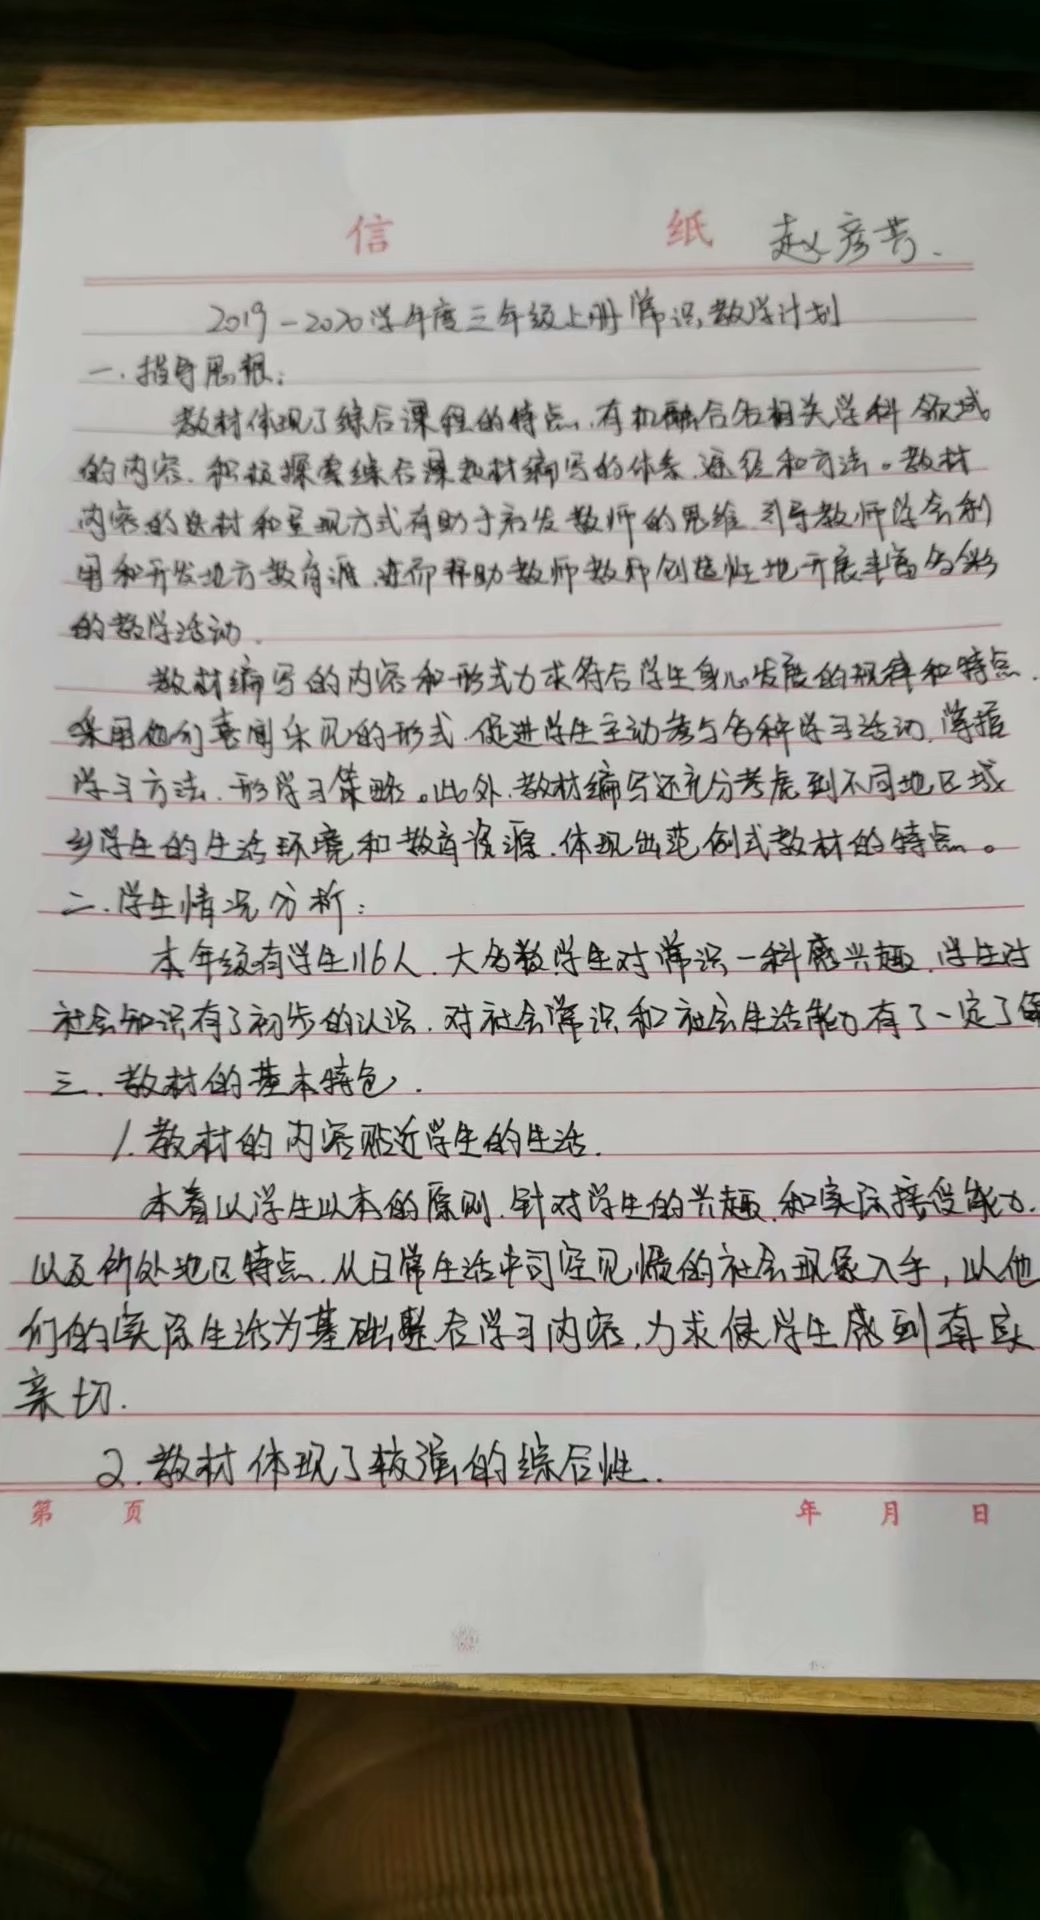 信 纸 赵彦芳.
2019-2020学年度三年级上册常识教学计划
一.指导思想:
教材体现了综合课程的特点,有机融合各相关学科领域
的内容,积极探索综合课教材编写的体系,途径和方法。教材
内容的选材和呈现方式有助于启发教师的思维,引导教师学会利
用和开发地方教育源,进而帮助教师教师创造性地开展丰富多彩
的教学活动.
教材编写的内容和形式力求符合学生身心发展的规律和特点.
采用他们喜闻乐见的形式,促进学生主动参与各种学习活动,掌握
学习方法,形学习策略。此外,教材编写还充分考虑到不同地区城
乡学生的生活环境和教育资源,体现出范例式教材的特点。
二.学生情况分析:
本年级有学生116人,大多数学生对常识一科感兴趣,学生对
社会知识有了初步的认识,对社会常识和社会生活能力有了一定了解
三.教材的基本特色.
1.教材的内容贴近学生的生活.
本着以学生以本的原则,针对学生的兴趣,和实际接受能力.
以及所处地区特点,从日常生活中司空见惯的社会现象入手,以他
们的实际生活为基础整合学习内容,力求使学生感到真实
亲切.
2.教材体现了较强的综合性.
第 页 年 月 日